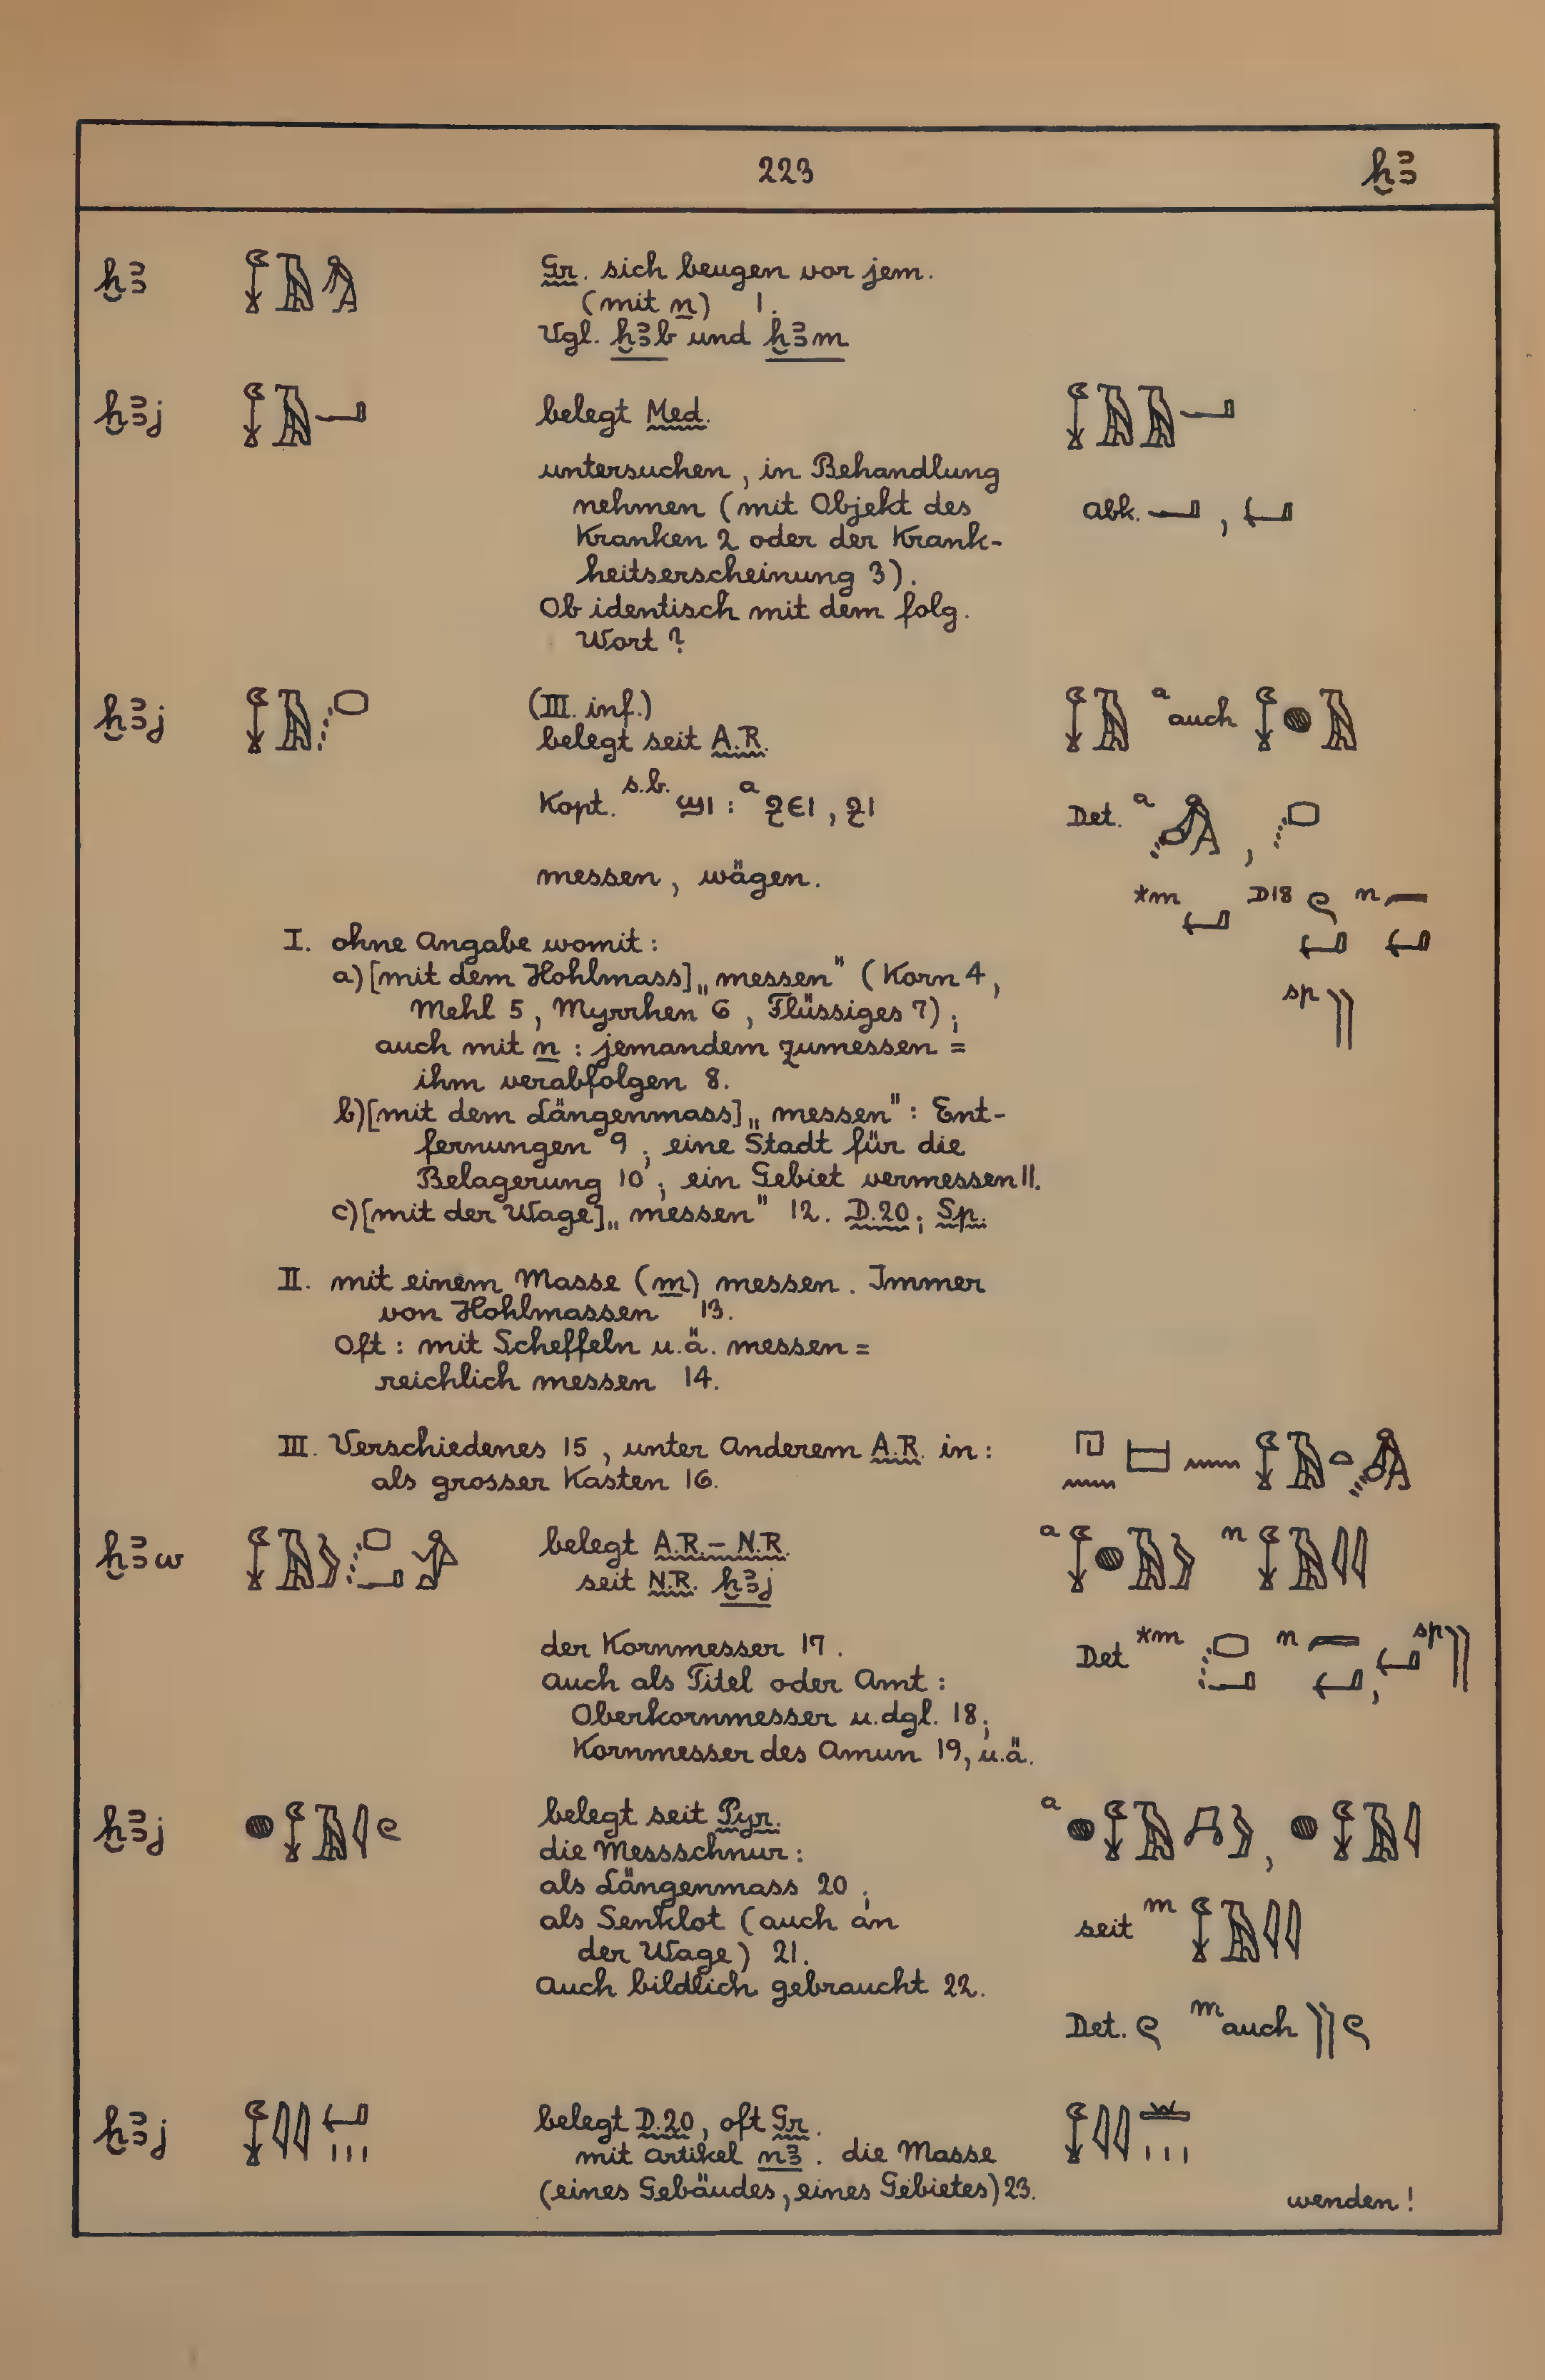 223 ḫꜣ
ḫꜣ
Gr. sich beugen vor jem.
(mit n) 1.
Vgl. ḫꜣb und ḫꜣm
ḫꜣj
belegt Med.
untersuchen, in Behandlung
nehmen (mit Objekt des
Kranken 2 oder der Krank-
heitserscheinung 3).
Ob identisch mit dem folg.
Wort?
abk. ,
ḫꜣj
(III. inf.)
belegt seit A.R.
Kopt. s.b. ϣⲓ : a ⳉⲉⲓ, ⳉⲓ
messen, wägen.
a auch
Det. a ,
*m D18 n
sp
I. ohne Angabe womit:
a) [mit dem Hohlmass] „messen" (Korn 4,
Mehl 5, Myrrhen 6, Flüssiges 7);
auch mit n: jemandem zumessen =
ihm verabfolgen 8.
b) [mit dem Längenmass] „messen": Ent-
fernungen 9; eine Stadt für die
Belagerung 10; ein Gebiet vermessen 11.
c) [mit der Wage] „messen" 12. D.20; Sp.
II. mit einem Masse (m) messen. Immer
von Hohlmassen 13.
Oft: mit Scheffeln u.ä. messen =
reichlich messen 14.
III. Verschiedenes 15, unter Anderem A.R. in:
als grosser Kasten 16.
ḫꜣw
belegt A.R.–N.R.
seit N.R. ḫꜣj
der Kornmesser 17.
Auch als Titel oder Amt:
Oberkornmesser u.dgl. 18;
Kornmesser des Amun 19, u.ä.
a n
Det *m n , sp
ḫꜣj
belegt seit Pyr.
die Messschnur:
als Längenmass 20;
als Senklot (auch an
der Wage) 21.
Auch bildlich gebraucht 22.
a ,
seit m
Det. m auch
ḫꜣj
belegt D.20, oft Gr.
mit Artikel nꜣ. die Masse
(eines Gebäudes, eines Gebietes) 23.
wenden!